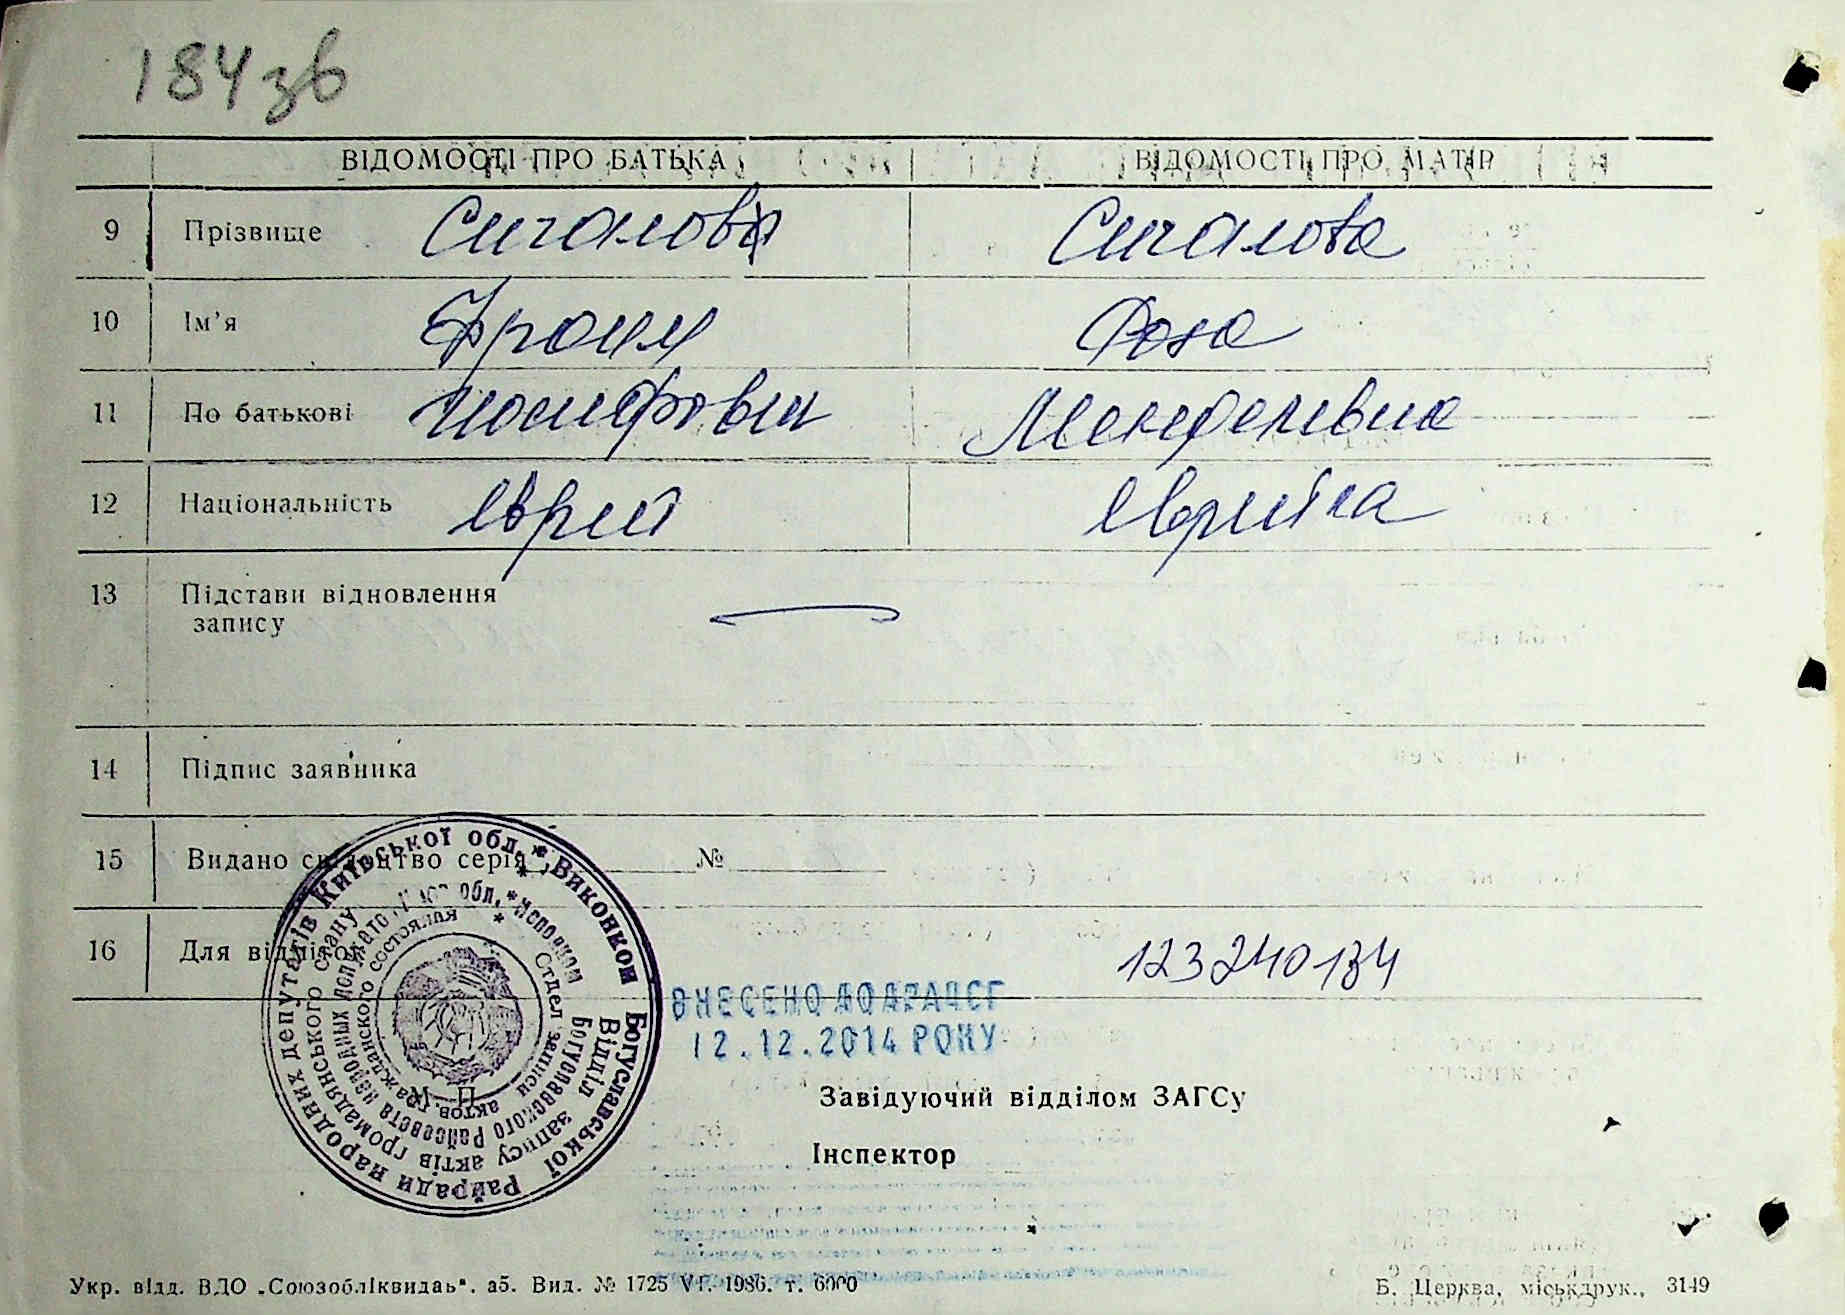 184зв
ВІДОМОСТІ ПРО БАТЬКА ВІДОМОСТІ ПРО МАТІР
9 Прізвище Сигалов Сигалова
10 Ім'я Фроим Роза
11 По батькові Иосифович Менделевна
12 Національність еврей еврейка
13 Підстави відновлення
запису
14 Підпис заявника
15 Видано свідоцтво серія №
16 Для відміток 123240134
ВНЕСЕНО ДО ДРАЦСГ
12.12.2014 РОКУ
Богуславської Райради народних депутатів Київської обл. * Виконком
Відділ запису актів громадянського стану
Богуславского Райсовета народных обл. * исполком
Отдел записи актов гражданского состояния
Завідуючий відділом ЗАГСу
Інспектор
Укр. відд. ВДО „Союзобліквидаь". аб. Вид. № 1725 VI. 1986. т. 6000
Б. Церква, міськдрук., 3149